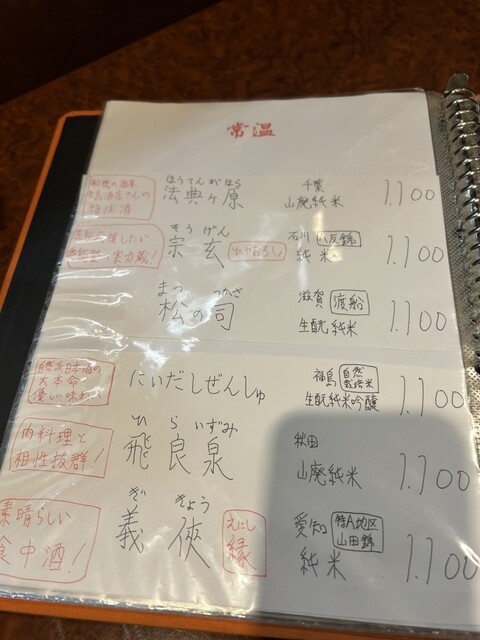 常温
船橋の酒単
ほうてんがはら
法典ヶ原
千葉
山廃純米
1.100
応援したい
実力蔵!
そうげん
宗玄
ひやおろし
石川 八反錦
純米
1.100
まつ つかさ
松の司
滋賀 渡船
生酛純米
1.100
自然派日本酒の
大本命
優しい味わい
にいだしぜんしゅ
福島 自然栽培米
生酛純米吟醸
1.100
肉料理と
相性抜群!
ひ ら いずみ
飛良泉
秋田
山廃純米
1.100
素晴らしい
食中酒!
ぎ きょう
義侠
えにし
縁
愛知 特A地区
山田錦
純米
1.100